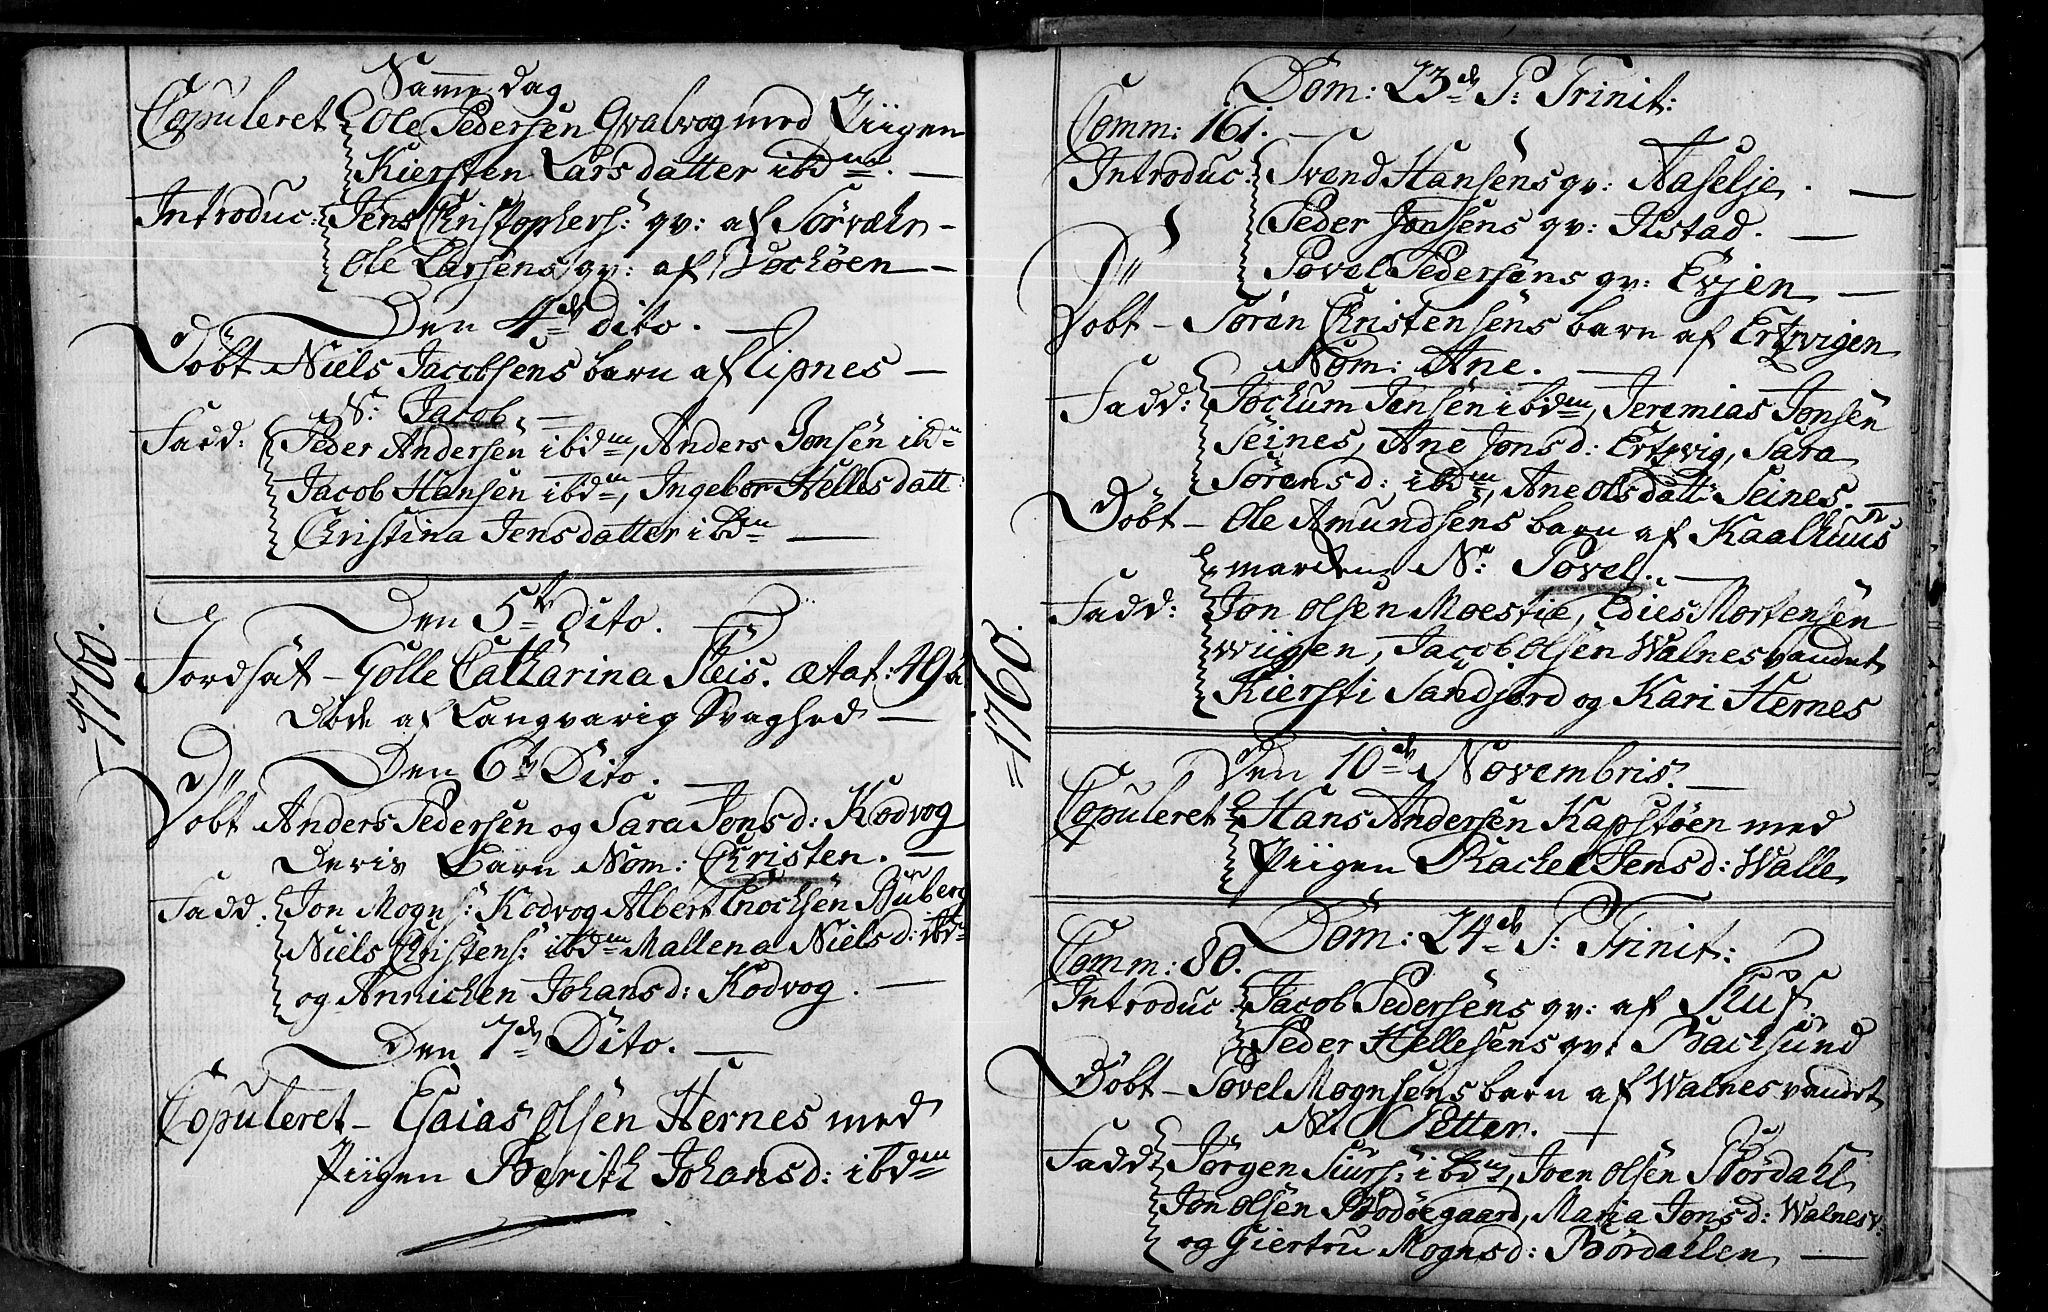 Samme dag
Copuleret Ole Pedersen Qvalvog med Piigen
Kiersten Larsdatter ibdm. —
Introduc: Jens Christophers: qv: af Sørvæhr —
Ole Larsens qv: af Kochøen —
Den 4de dito. —
Døbt Niels Jacobsens barn af Tipnes —
N: Jacob. —
Fadd: Peder Andersen ibdm, Anders Jonsen ibdm
Jacob Hansen ibdm, Ingebor Hellesdatt:
Christina Jensdatter ibdm —
Den 5te Dito. —
Jordsat — Golle Catharina Steis. ætat: 49
Døde af Langvarig Svaghed —
Den 6te Dito. —
Døbt Anders Pedersen og Sara Jonsd: Kodvog
Deris Barn Nom: Christen. —
Fadd. Jon Mogns: Kodvog Albert Enochsen Buberg
Niels Christens: ibdm Mallena Nielsd: ibdm
og Annichen Johansd: Kodvog. —
Den 7de Dito. —
Copuleret — Esaias Olsen Hernes med
Piigen Berith Johansd: ibdm
—1760.
Dom: 23de P: Trinit:
Comm: 161. —
Introduc: Svend Hansens qv: Aaselje. —
Peder Jonsens qv: Ilstad. —
Povel Pedersens qv: Evjen —
Døbt — Søren Christensens barn af Ertzvigen
Nom: Ane. —
Fadd: Jochum Jensen ibdm, Jeremias Jonsen
Seines, Ane Jonsd: Ertzvig, Sara
Sørensd: ibdm, Ane Olsdatt: Seines. —
Døbt — Ole Amundsens barn af Kaalhuus
marchen N: Povel. —
Fadd: Jon Olsen Moestie, Edies Mortensen
wiigen, Jacob Olsen Walnesvandet
Kiersti Sandjord og Kari Hernes
=1760.
Den 10de Novembris. —
Copuleret Hans Andersen Kapstøen med
Piigen Rachel Jensd: Walle
Dom: 24de P: Trinit:
Comm: 80.
Introduc: Jacob Pedersens qv: af Skuf
Peder Hellesens qv: Bachsund
Døbt — Povel Mognsens barn af Walnesvandet
N: Petter. —
Fadd: Jørgen Siurs: ibdm, Joen Olsen Børdahl
Jon Olsen Bodøegaard, Maria Jonsd: Walnesv:
og Giertru Mognsd: Børdallen —